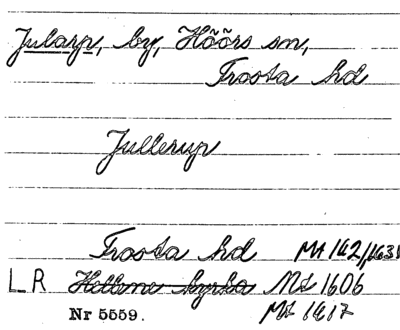 Jularp, by, Höörs sn,
Frosta hd
Jullerup
Frosta hd MA 142/1631
LR Hellene kyrka ML 1606
Nr 5559. ML 1617